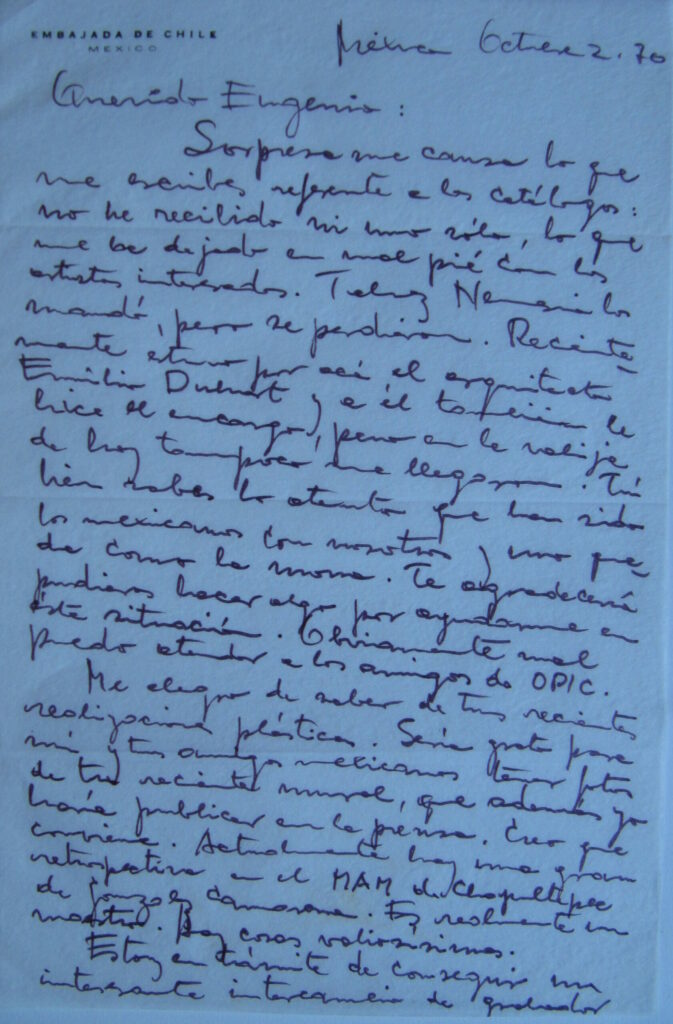 EMBAJADA DE CHILE
MEXICO
México Octubre 2. 70
Querido Eugenio :
Sorpresa me causa lo que
me escribes referente a los catálogos :
no he recibido ni uno sólo, lo que
me ha dejado en mal pié con los
artistas interesados. Talvez Nemesio los
mandó, pero se perdieron. Reciente-
mente estuvo por acá el arquitecto
Emilio Duhart y a él también le
hice el encargo, pero en la valija
de hoy tampoco me llegaron. Tú
bien sabes lo atento que han sido
los mexicanos con nosotros y uno que-
da como la mona. Te agradecería
pudieras hacer algo por ayudarme en
ésta situación. Obviamente mal
puedo atender a los amigos de OPIC.
Me alegro de saber de tus recientes
realizaciones plásticas. Sería grato para
mí y tus amigos mexicanos tener fotos
de tu reciente mural, que además yo
haría publicar en la prensa. Creo que
conviene. Actualmente hay una gran
retrospectiva en el MAM de Chapultepec
de González Camarena. Es realmente un
maestro. Hay cosas valiosísimas.
Estoy en trámite de conseguir un
interesante intercambio de grabador